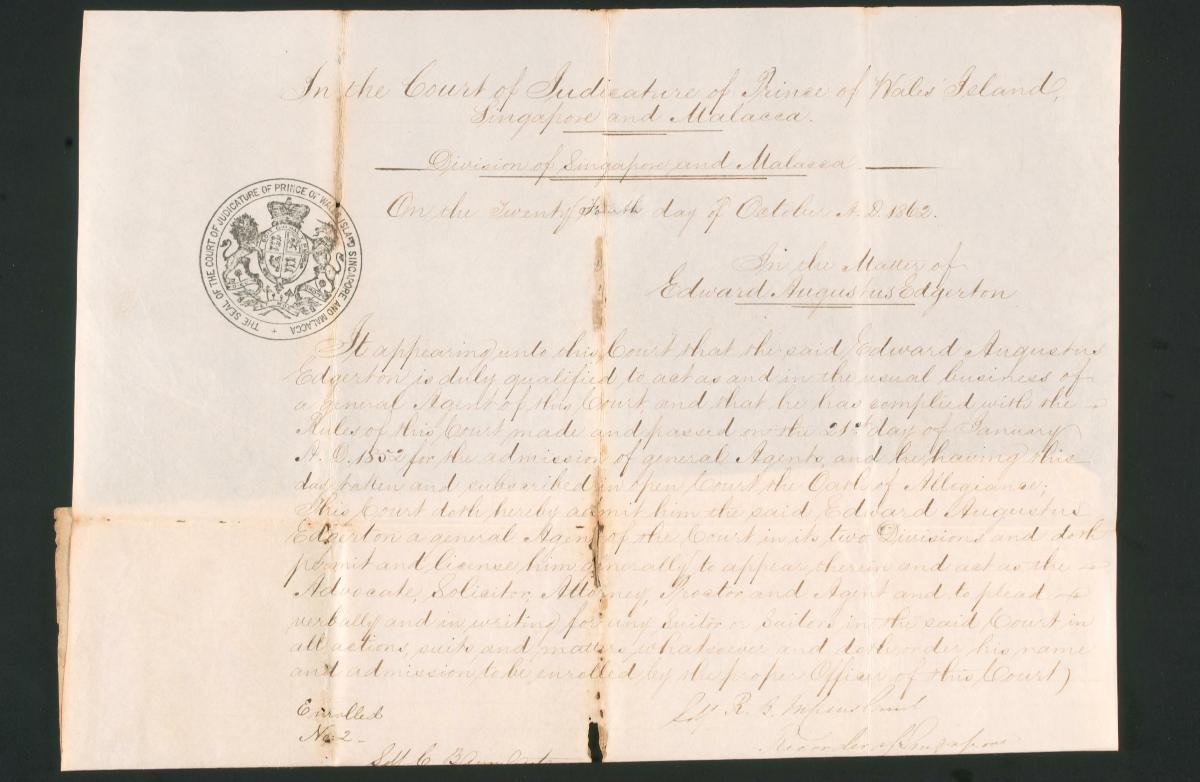 In the Court of Judicature of Prince of Wales' Island,
Singapore and Malacca.
Division of Singapore and Malacca
On the Twenty day of October A.D. 1862.
THE SEAL OF THE COURT OF JUDICATURE OF PRINCE OF WALES ISLAND SINGAPORE AND MALACCA
In the Matter of
Edward Augustus Edgerton
It appearing unto this Court that the said Edward Augustus
Edgerton is duly qualified to act as and in the usual business of
a general Agent of this Court and that he has complied with the
Rules of this Court made and passed on the 21st day of January
A.D. 1852 for the admission of general Agents and he having this
day taken and subscribed in open Court the Oath of Allegiance;
This Court doth hereby admit him the said Edward Augustus
Edgerton a general Agent of the Court in its two Divisions and doth
permit and license him generally to appear therein and act as the
Advocate, Solicitor, Attorney, Proctor and Agent and to plead
verbally and in writing for any Suitor or Suitors in the said Court in
all actions, suits and matters whatsoever and doth order his name
and admission to be enrolled by the proper Officer of this Court)
Enrolled
No. 2
Sd/ R. B. 
Recorder of Singapore
Sd/ C. B.